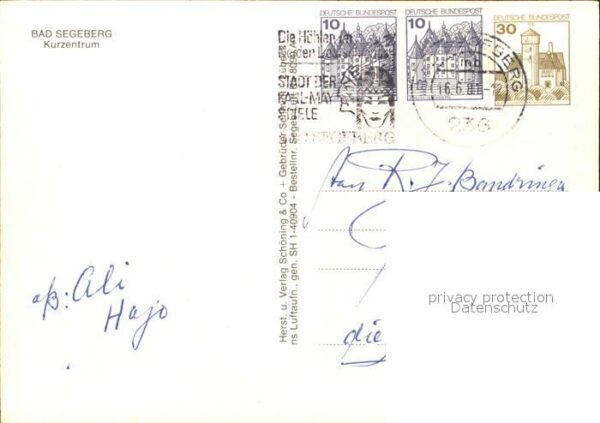 BAD SEGEBERG
Kurzentrum
10 DEUTSCHE BUNDESPOST
10 DEUTSCHE BUNDESPOST
30 DEUTSCHE BUNDESPOST
Die Höhlen
in der
STADT DER
KARL-MAY
SPIELE
SEGEBERG
16.6.81-12
236
Herst. u. Verlag Schöning & Co + Gebrüder Schmidt
ns Luftaufn., gen. SH 1-40904 - Bestellnr. Segeb
R. J. Bandringa
die
Ali
Hajo
privacy protection
Datenschutz